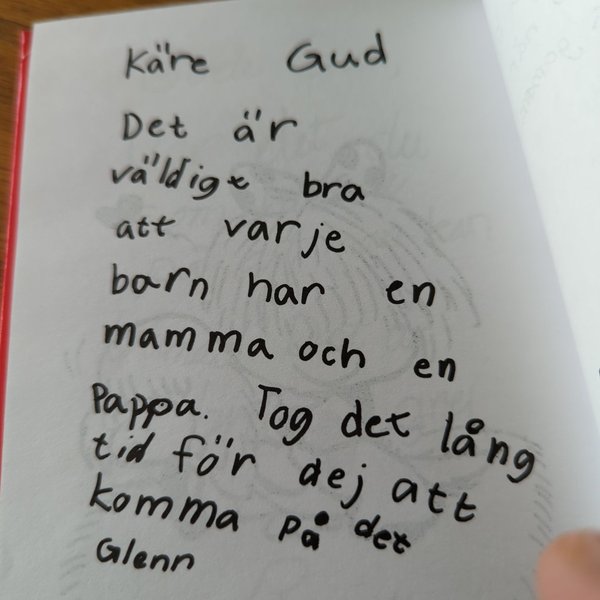 Käre Gud
Det är
väldigt bra
att varje
barn har en
mamma och en
Pappa. Tog det lång
tid för dej att
komma på det
Glenn